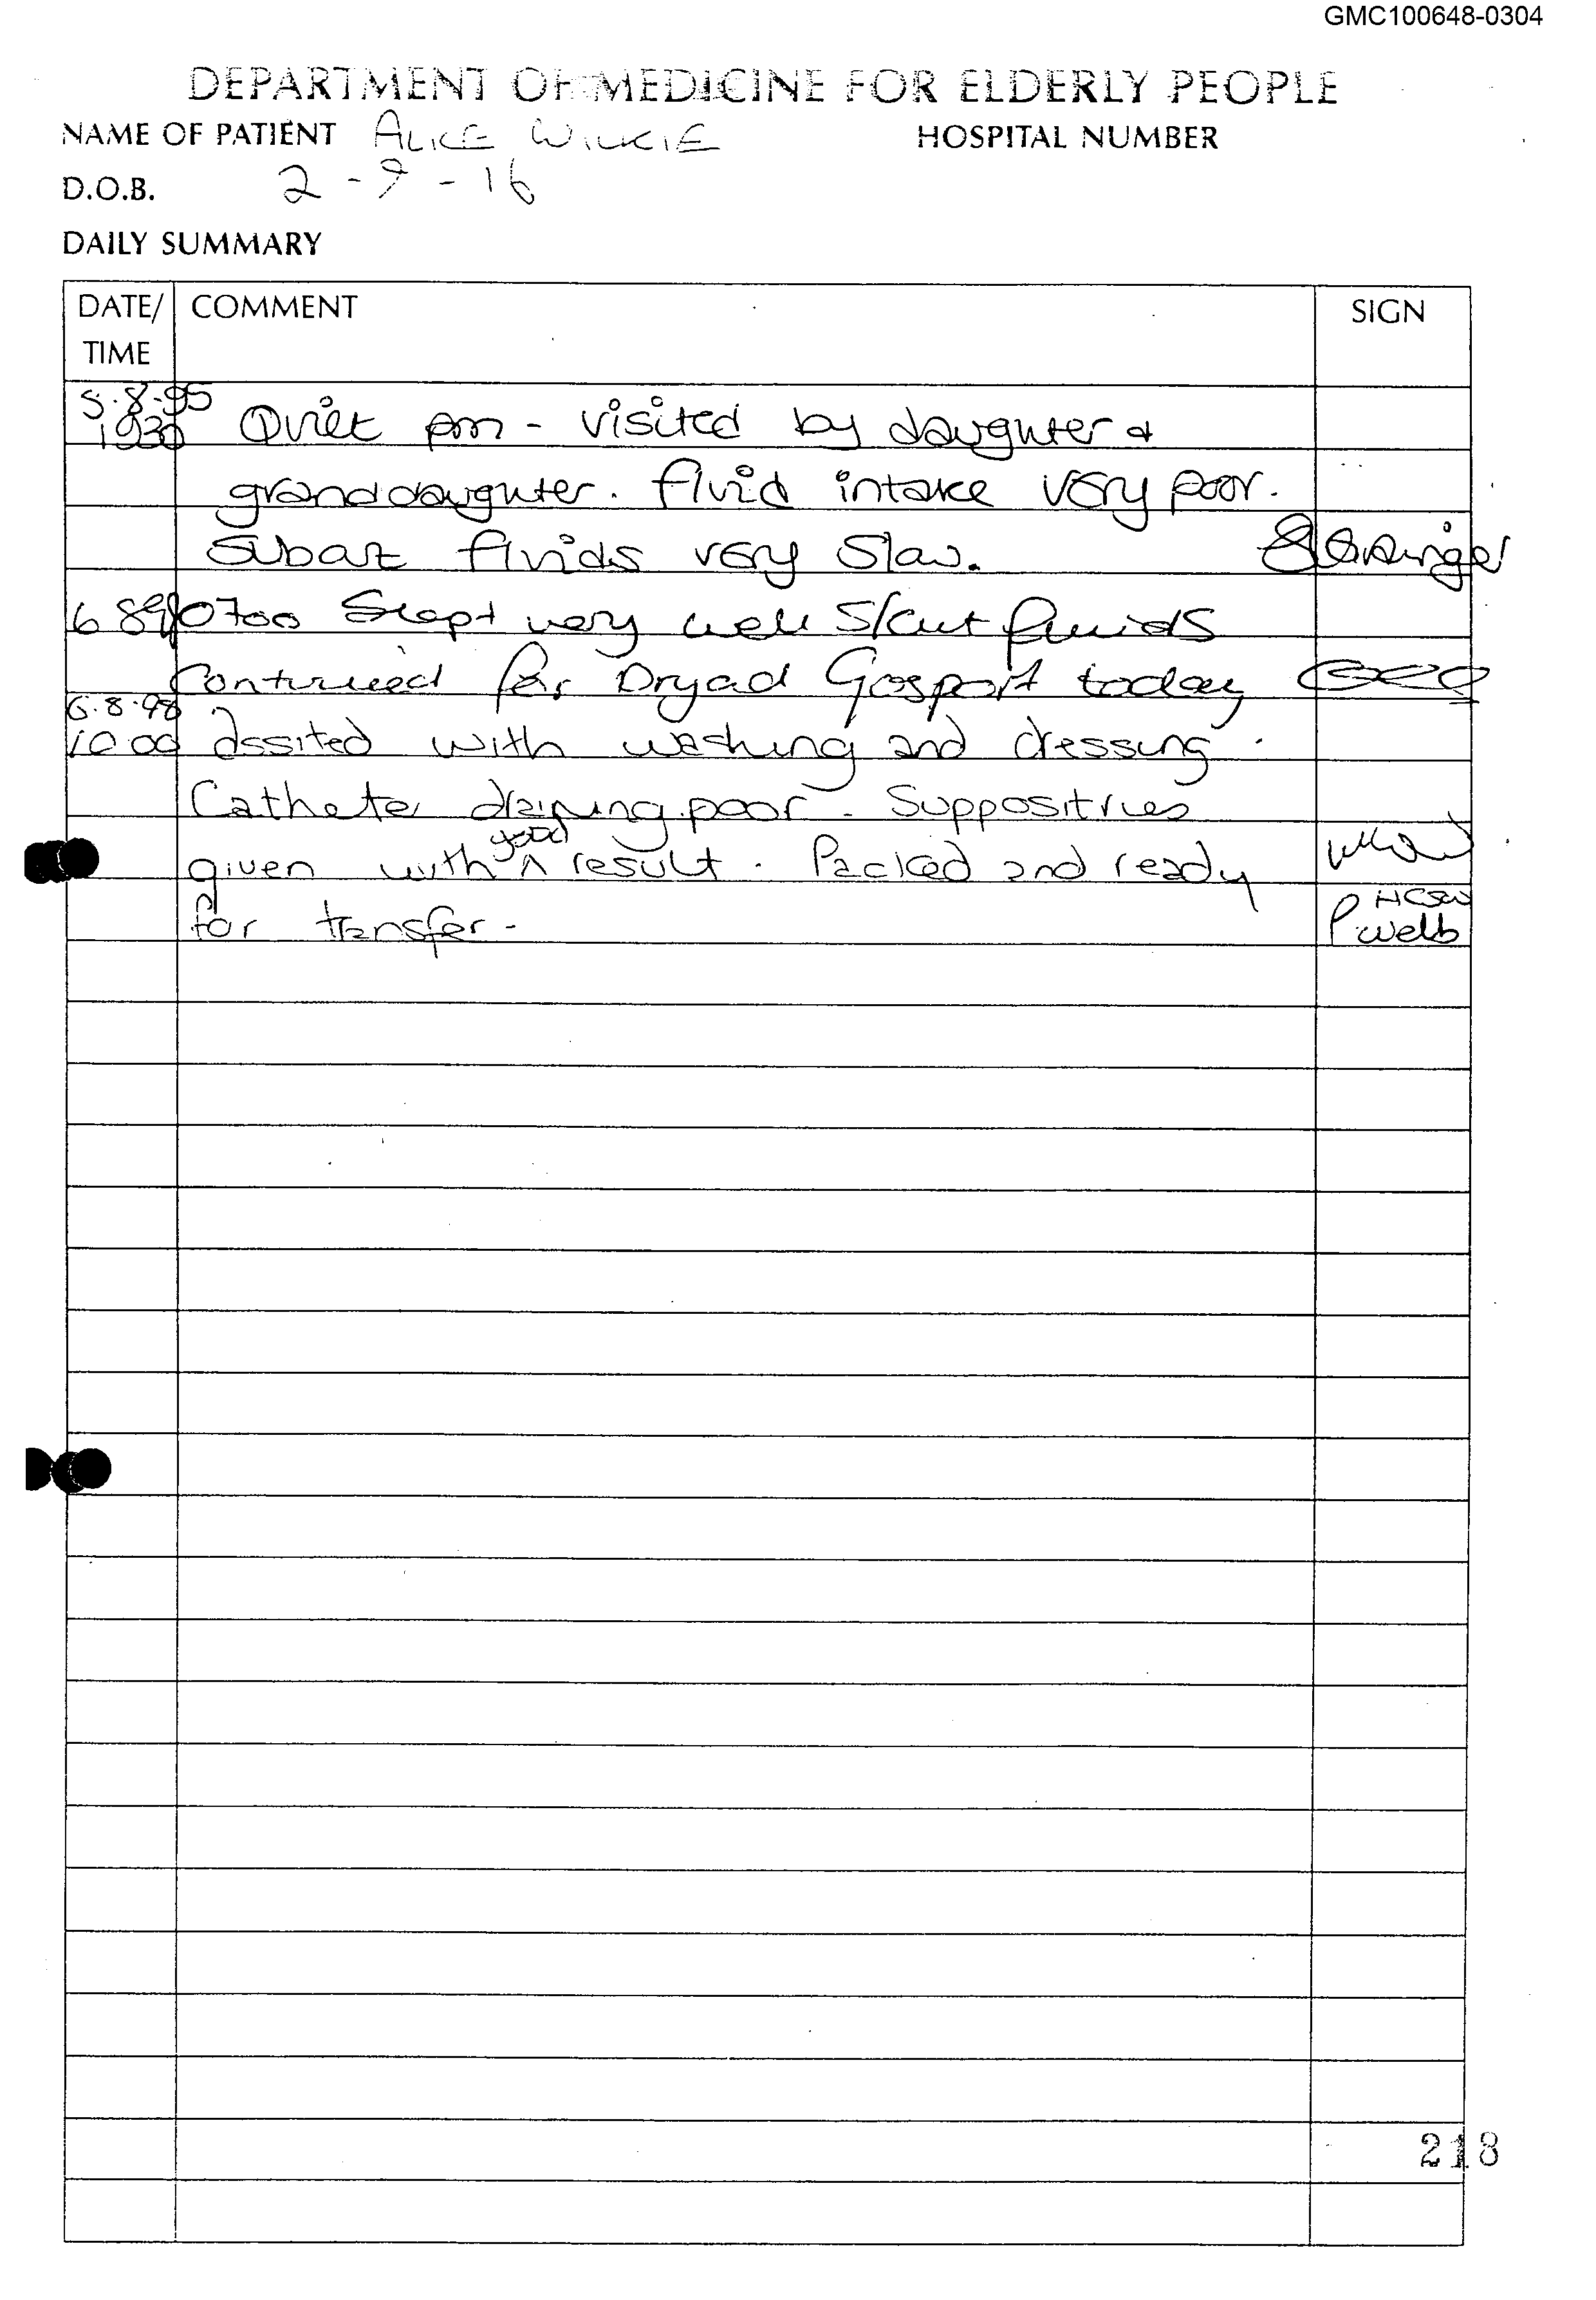 GMC100648-0304
DEPARTMENT OF MEDICINE FOR ELDERLY PEOPLE
NAME OF PATIENT ALICE WILKIE HOSPITAL NUMBER
D.O.B. 2-9-16
DAILY SUMMARY
DATE/ TIME COMMENT SIGN
5.8.95
1930 Quiet pm - visited by daughter &
granddaughter. fluid intake very poor.
Subcut fluids very slow.
6 8 98 0700 Slept very well S/cut fluids
Continued for Dryad Gosport today
6.8.98
10 00 assited with washing and dressing.
Catheter draining poor. Suppositries
given with good result. Packed and ready
for transfer - HCSW P Webb
218